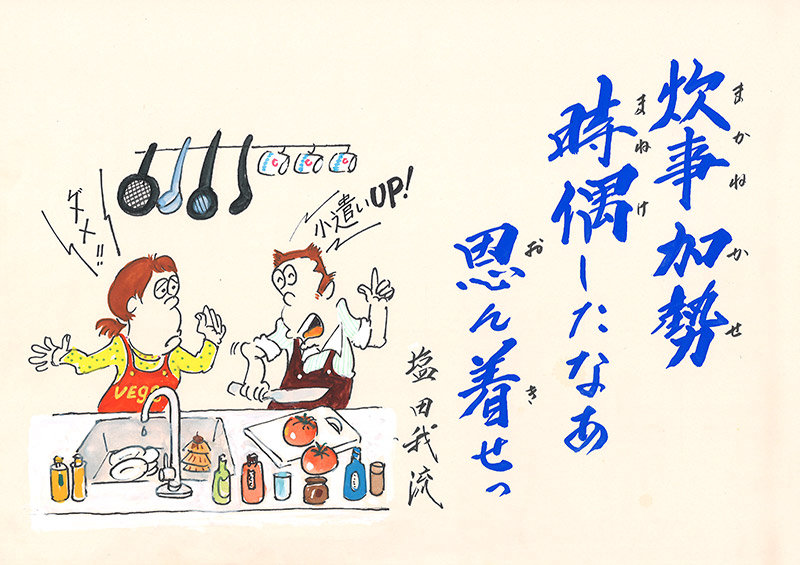 炊事加勢
まかねかせ
時偶したなあ
まねけ
恩ん着せっ
お き
塩田我流
小遣いUP!
ダメ!!